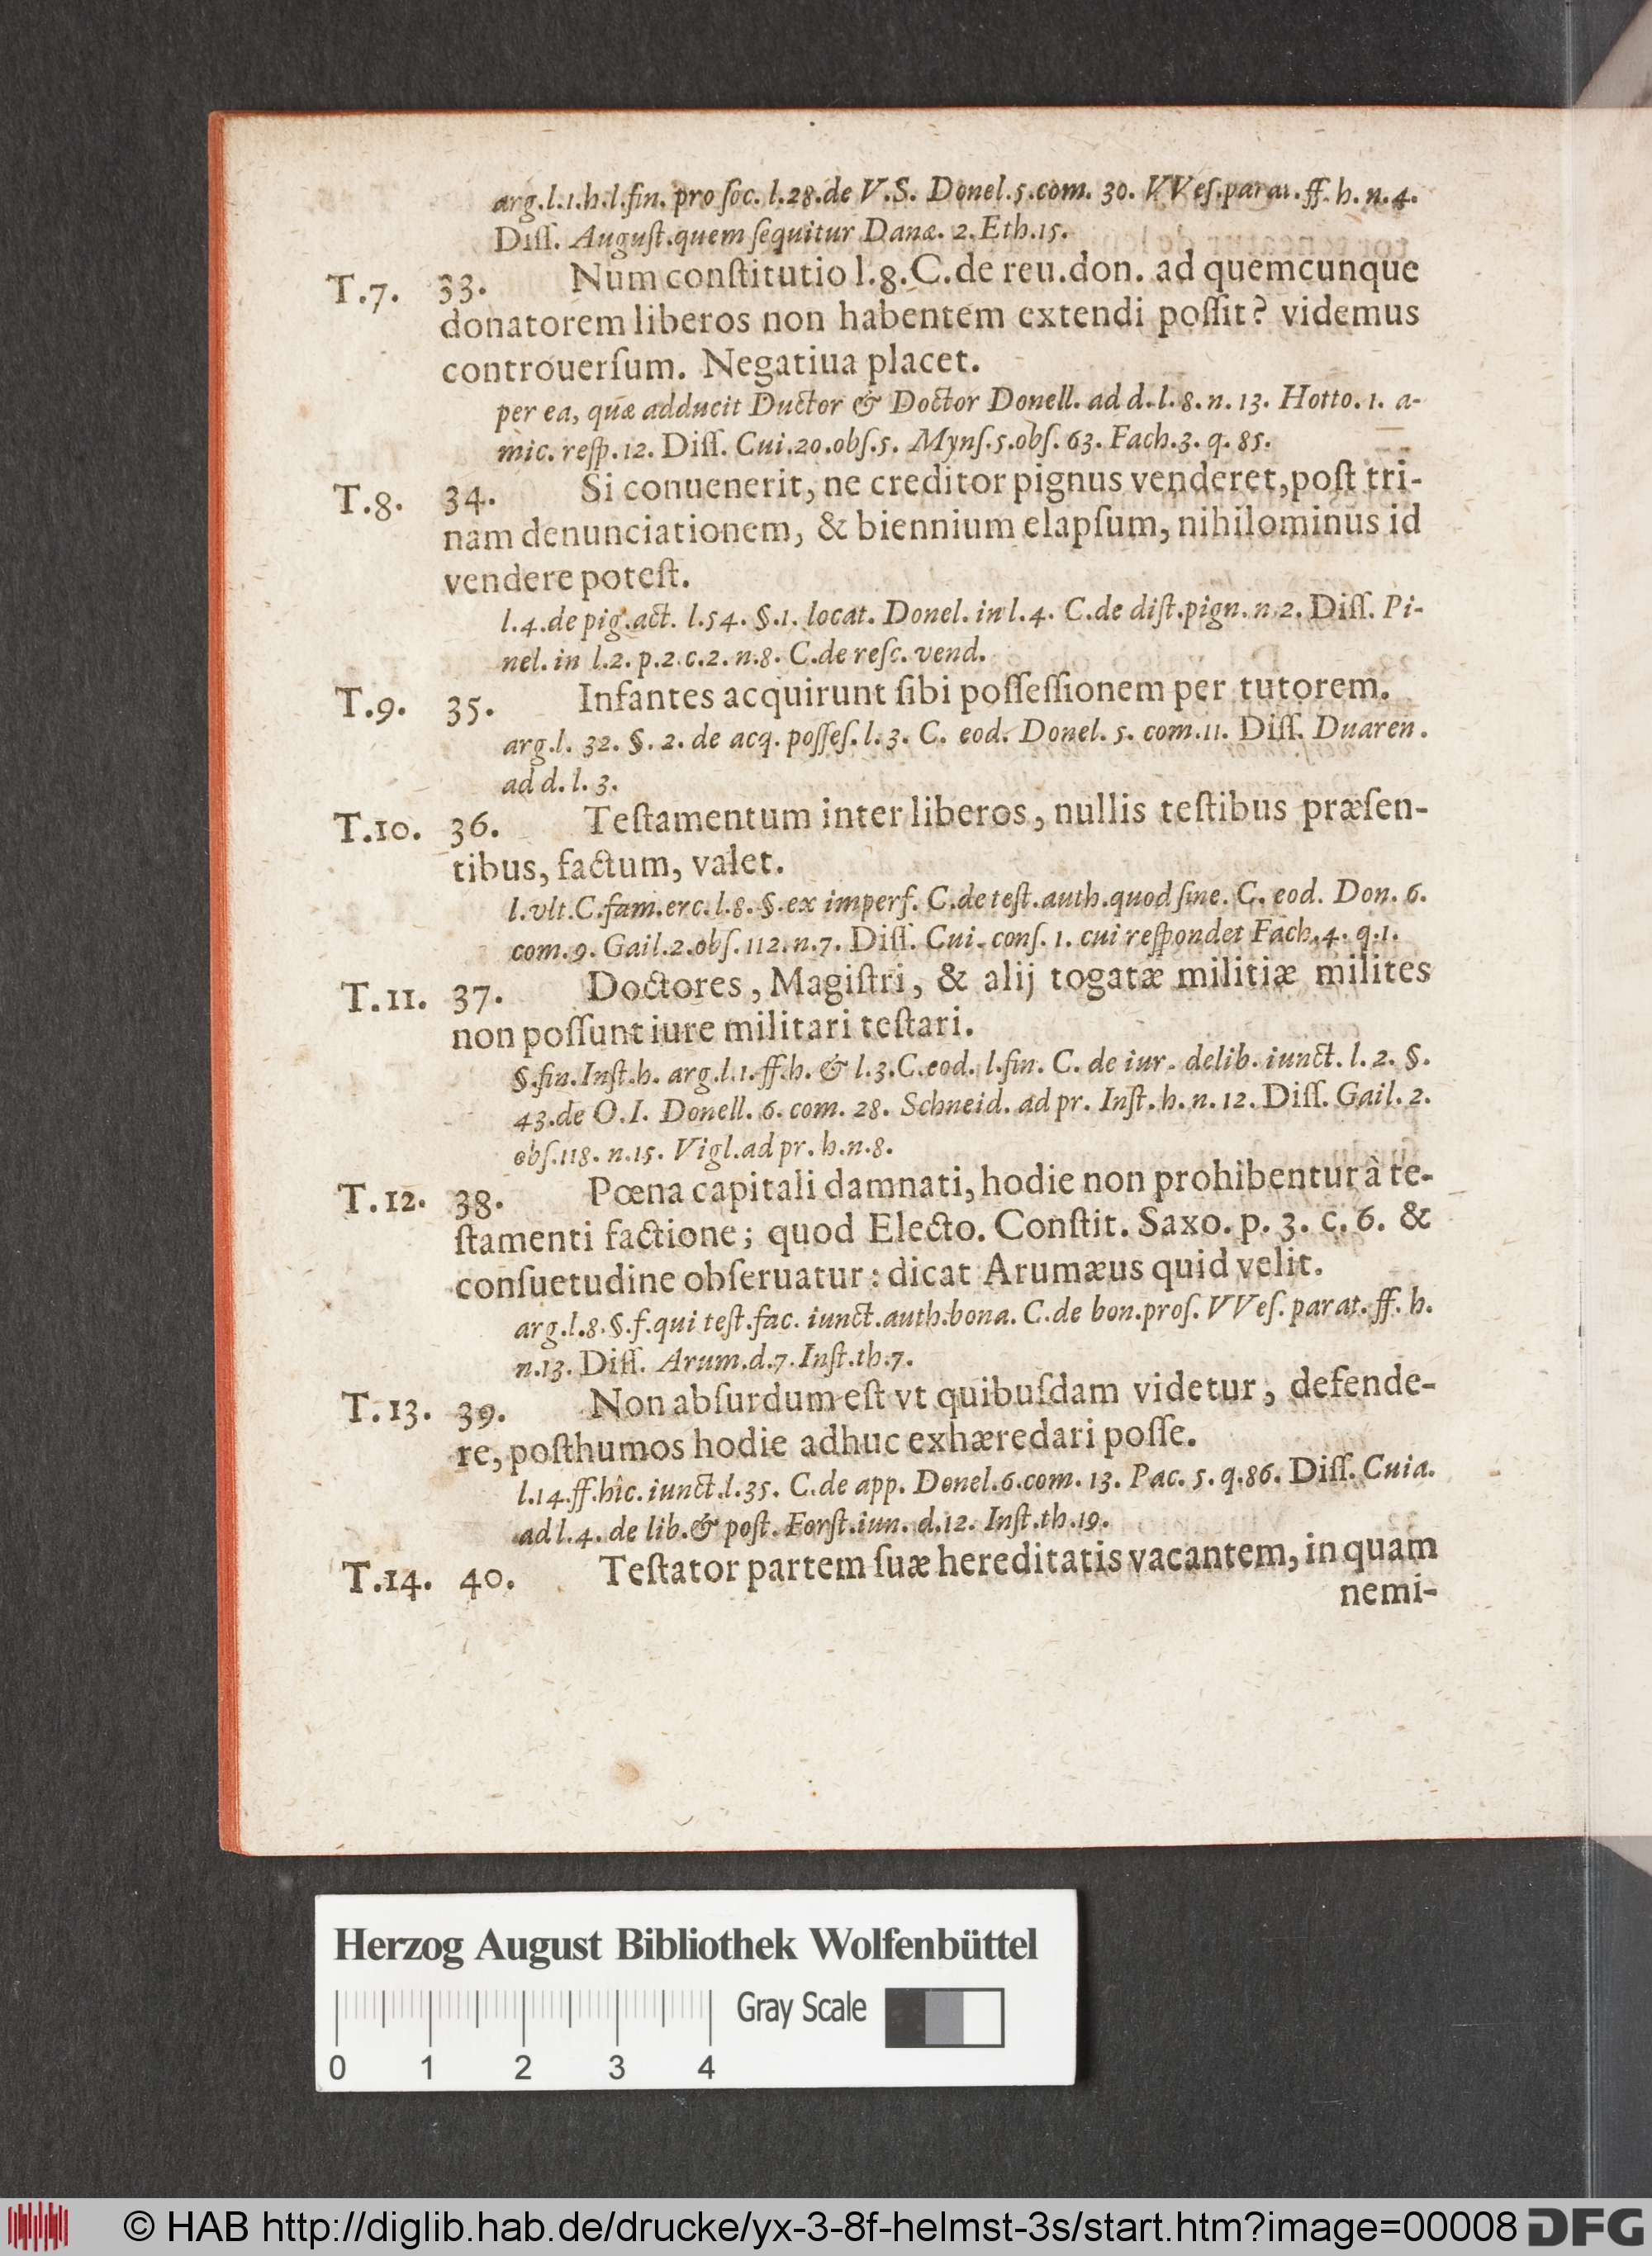 arg.l.1.h.l.fin. pro ſoc. l.28.de V.S. Donel.5.com. 30. VVeſ.parat.ff. h. n.4.
Diſſ. Auguſt.quem ſequitur Danæ. 2.Eth.15.
T.7. 33. Num conſtitutio l.8.C.de reu.don. ad quemcunque
donatorem liberos non habentem extendi poſſit? videmus
controuerſum. Negatiua placet.
per ea, quæ adducit Ductor & Doctor Donell. ad d.l.8.n.13. Hotto.1. a-
mic. reſp.12. Diſſ. Cui.20.obſ.5. Mynſ.5.obſ.63. Fach.3. q.85.
T.8. 34. Si conuenerit, ne creditor pignus venderet, poſt tri-
nam denunciationem, & biennium elapſum, nihilominus id
vendere poteſt.
l.4.de pig.act. l.54. §.1. locat. Donel. in l.4. C.de diſt.pign. n.2. Diſſ. Pi-
nel. in l.2. p.2.c.2. n.8. C.de reſc. vend.
T.9. 35. Infantes acquirunt ſibi poſſeſſionem per tutorem.
arg.l. 32. §. 2. de acq. poſſeſ. l.3. C. eod. Donel. 5. com.11. Diſſ. Duaren.
ad d. l. 3.
T.10. 36. Teſtamentum inter liberos, nullis teſtibus præſen-
tibus, factum, valet.
l.vlt.C.fam.erc.l.8.§.ex imperf. C.de teſt.auth.quod ſine. C. eod. Don. 6.
com.9. Gail.2.obſ.112.n.7. Diſſ. Cui. conſ. 1. cui reſpondet Fach.4. q.1.
T.11. 37. Doctores, Magiſtri, & alij togatæ militiæ milites
non poſſunt iure militari teſtari.
§.fin.Inſt.h. arg.l.1.ff.h. & l.3.C.eod. l.fin. C. de iur. delib. iunct. l. 2. §.
43.de O.I. Donell. 6. com. 28. Schneid. ad pr. Inſt. h. n. 12. Diſſ. Gail. 2.
obſ.118. n.15. Vigl.ad pr. h.n.8.
T.12. 38. Pœna capitali damnati, hodie non prohibentur à te-
ſtamenti factione; quod Electo. Conſtit. Saxo. p. 3. c. 6. &
conſuetudine obſeruatur: dicat Arumæus quid velit.
arg.l.8.§.f.qui teſt.fac. iunct.auth.bona. C.de bon.proſ. VVeſ. parat. ff. h.
n.13. Diſſ. Arum.d.7.Inſt.th.7.
T.13. 39. Non abſurdum eſt vt quibuſdam videtur, defende-
re, poſthumos hodie adhuc exhæredari poſſe.
l.14.ff.hîc. iunct.l.35. C.de app. Donel.6.com. 13. Pac. 5. q.86. Diſſ. Cuia.
ad l.4. de lib.& poſt. Forſt.iun. d.12. Inſt.th.19.
T.14. 40. Teſtator partem ſuæ hereditatis vacantem, in quam
nemi-
Herzog August Bibliothek Wolfenbüttel
Gray Scale
0 1 2 3 4
© HAB http://diglib.hab.de/drucke/yx-3-8f-helmst-3s/start.htm?image=00008 DFG